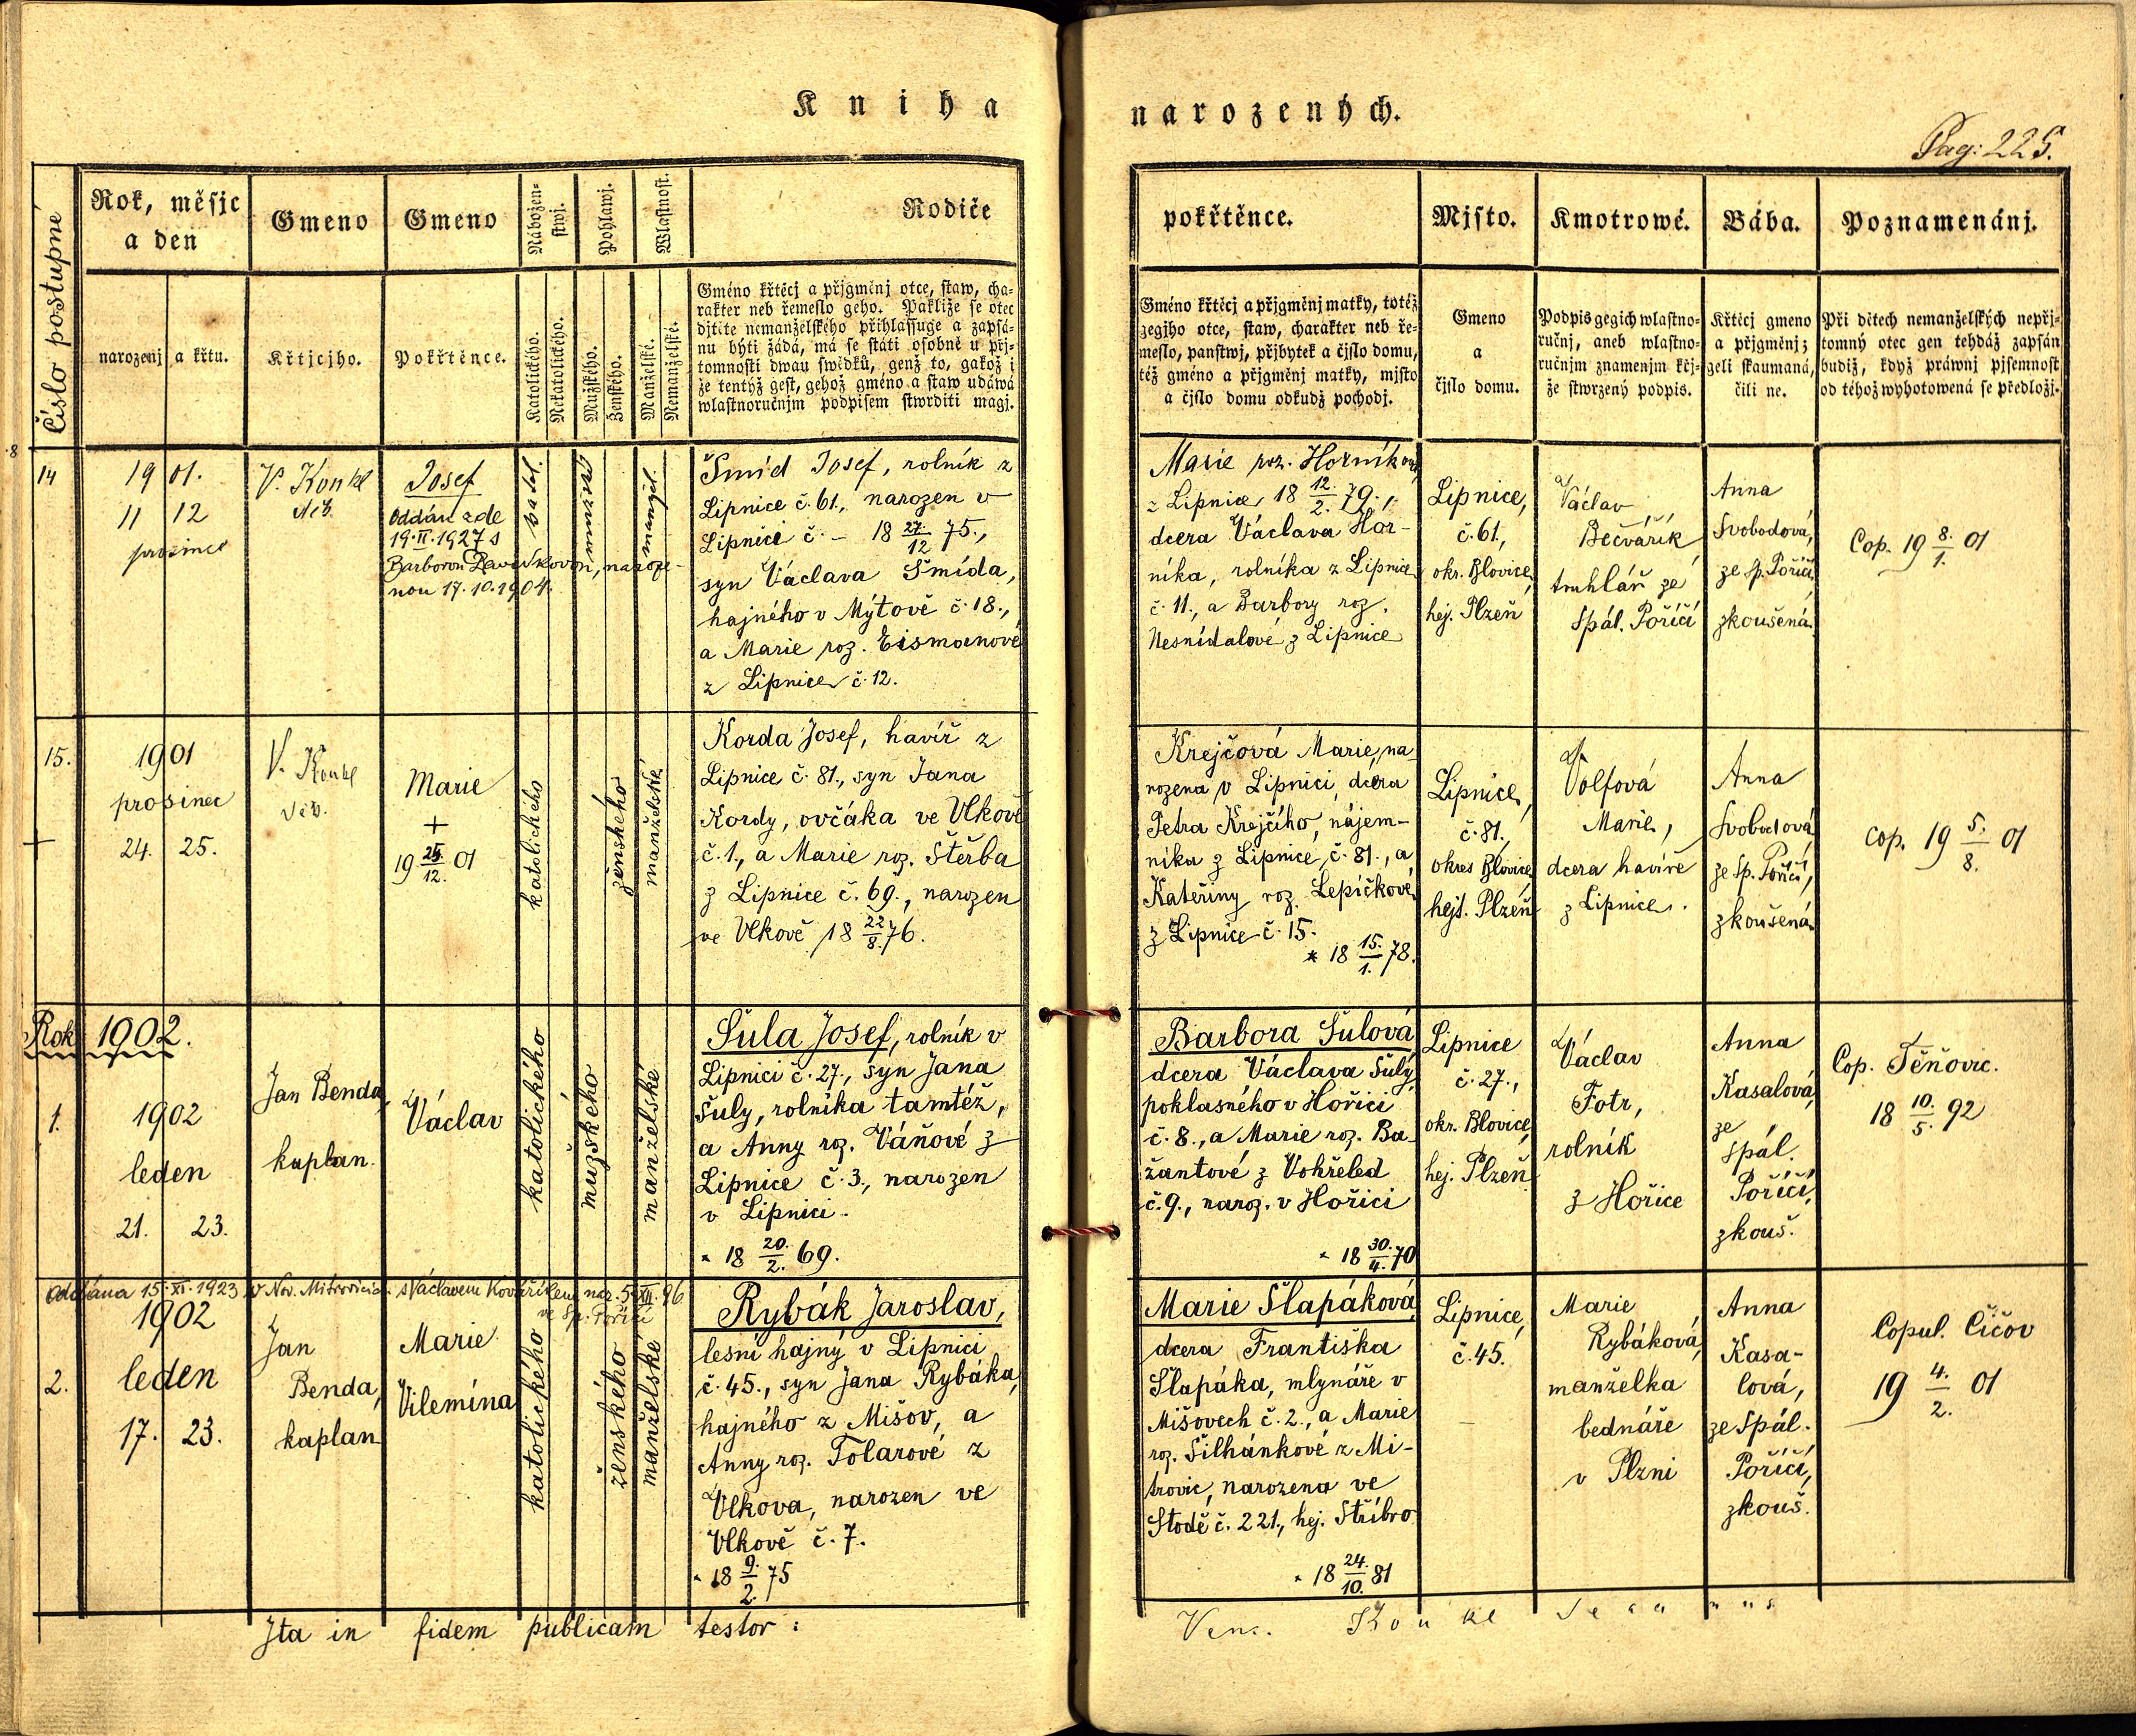 Kniha
narozených.
Pag: 225.
Číslo postupné
Rok, měsjc
a den
Gmeno
Gmeno
Nábožen-
stwj.
Pohlawj.
Wlastnost.
Rodiče
narozenj
a křtu.
Křtjcjho.
Pokřtěnce.
Katolického.
Nekatolického.
Mužského.
Ženského.
Manželské.
Nemanželské.
Gméno křtěcj a přjgměnj otce, staw, cha-
rakter neb řemeslo geho. Pakliže se otec
djtěte nemanželského přihlassuge a zapsá-
nu býti žádá, má se státi osobně u přj-
tomnosti dwau swědků, genž to, gakož i
že tentýž gest, gehož gméno a staw udáwá
wlastnoručnjm podpisem stwrditi magj.
pokřtěnce.
Mjsto.
Kmotrowé.
Bába.
Poznamenánj.
Gméno křtěcj a přjgměnj matky, totéž
gegjho otce, staw, charakter neb ře-
meslo, panstwj, přjbytek a čjslo domu,
též gméno a přjgměnj matky, mjsto
a čjslo domu odkudž pochodj.
Gmeno
a
čjslo domu.
Podpis gegich wlastno-
ručnj, aneb wlastno-
ručnjm znamenjm křj-
že stwrzený podpis.
Křtěcj gmeno
a přjgměnj;
geli skaumaná,
čili ne.
Při dětech nemanželských nepřj-
tomný otec gen tehdáž zapsán
budiž, když práwnj pjsemnost
od téhož wyhotowená se předložj.
14
1901.
11 12
prosinec
V. Konkl
děk.
Josef
Oddán zde
19.II.1927 s
nou 17.10.1904.
katol.
manžel.
Šmíd Josef, rolník z
Lipnice č. 61., narozen v
Lipnici č. – 18 27./12 75.,
syn Václava Šmída,
hajného v Mýtově č. 18.,
a Marie roz. Eismanové
z Lipnice č. 12.
Marie roz. Horníková
z Lipnice, 18 12./2. 79.,
dcera Václava Hor-
níka, rolníka z Lipnice
č. 11., a Barbory roz.
Nesnídalové z Lipnice
Lipnice,
č. 61.,
okr. Blovice,
hej. Plzeň
Václav
Bečvářík
truhlář ze
Spál. Poříčí
Anna
Svobodová,
ze Sp. Poříčí,
zkoušená.
Cop. 19 8./1. 01
15.
+
1901
prosinec
24. 25.
V. Konkl
děk.
Marie
+
19 25./12. 01
katolického
ženského
manželské
Korda Josef, havíř z
Lipnice č. 81., syn Jana
Kordy, ovčáka ve Vlkově
č. 1., a Marie roz. Štěrba
z Lipnice č. 69., narozen
ve Vlkově 18 22/8. 76.
Krejčová Marie, na-
rozena v Lipnici, dcera
Petra Krejčího, nájem-
níka z Lipnice, č. 81., a
Kateřiny roz. Lepičkové
z Lipnice č. 15.
* 18 15./1. 78.
Lipnice,
č. 81.,
okres Blovice,
hejt. Plzeň
Volfová
Marie,
dcera havíře
z Lipnice.
Anna
Svobodová
ze Sp. Poříčí,
zkoušená
cop. 19 5./8. 01
Rok 1902.
1.
1902
leden
21. 23.
Jan Benda,
kaplan.
Václav
katolického
mužského
manželské
Šula Josef, rolník v
Lipnici č. 27., syn Jana
Šuly, rolníka tamtéž,
a Anny roz. Váňové z
Lipnice č. 3., narozen
v Lipnici.
* 18 20./2. 69.
Barbora Šulová,
dcera Václava Šulý,
poklasného v Hořici
č. 8., a Marie roz. Ba-
žantové z Vohřeled
č. 9., naroz. v Hořici
* 18 30./4. 70
Lipnice
č. 27.,
okr. Blovice,
hej. Plzeň
Václav
Fotr,
rolník
z Hořice
Anna
Kasalová,
ze
Spál.
Poříčí,
zkouš.
Cop. Těňovic.
18 10./5. 92
Oddána 15.XI.1923 v Nov. Mitrovicích s Václavem Kovaříkem nar. 5.XII.96
ve Sp. Poříčí
2.
1902
leden
17. 23.
Jan
Benda,
kaplan
Marie
Vilemína
katolického
ženského
manželské
Rybák Jaroslav,
lesní hajný v Lipnici
č. 45., syn Jana Rybáka,
hajného z Mišov, a
Anny roz. Tolarové z
Vlkova, narozen ve
Vlkově č. 7.
* 18 9./2. 75
Marie Šlapáková,
dcera Františka
Šlapáka, mlynáře v
Mišovech č. 2., a Marie
roz. Šilhánkové z Mi-
trovic, narozena ve
Stodě č. 221., hej. Stříbro
* 18 24./10. 81
Lipnice,
č. 45.
Marie
Rybáková,
manželka
bednáře
v Plzni
Anna
Kasa-
lová,
ze Spál.
Poříčí,
zkouš.
Copul. Čičov
19 4./2. 01
Ita in fidem publicam testor:
Venc. Konkl Decanus